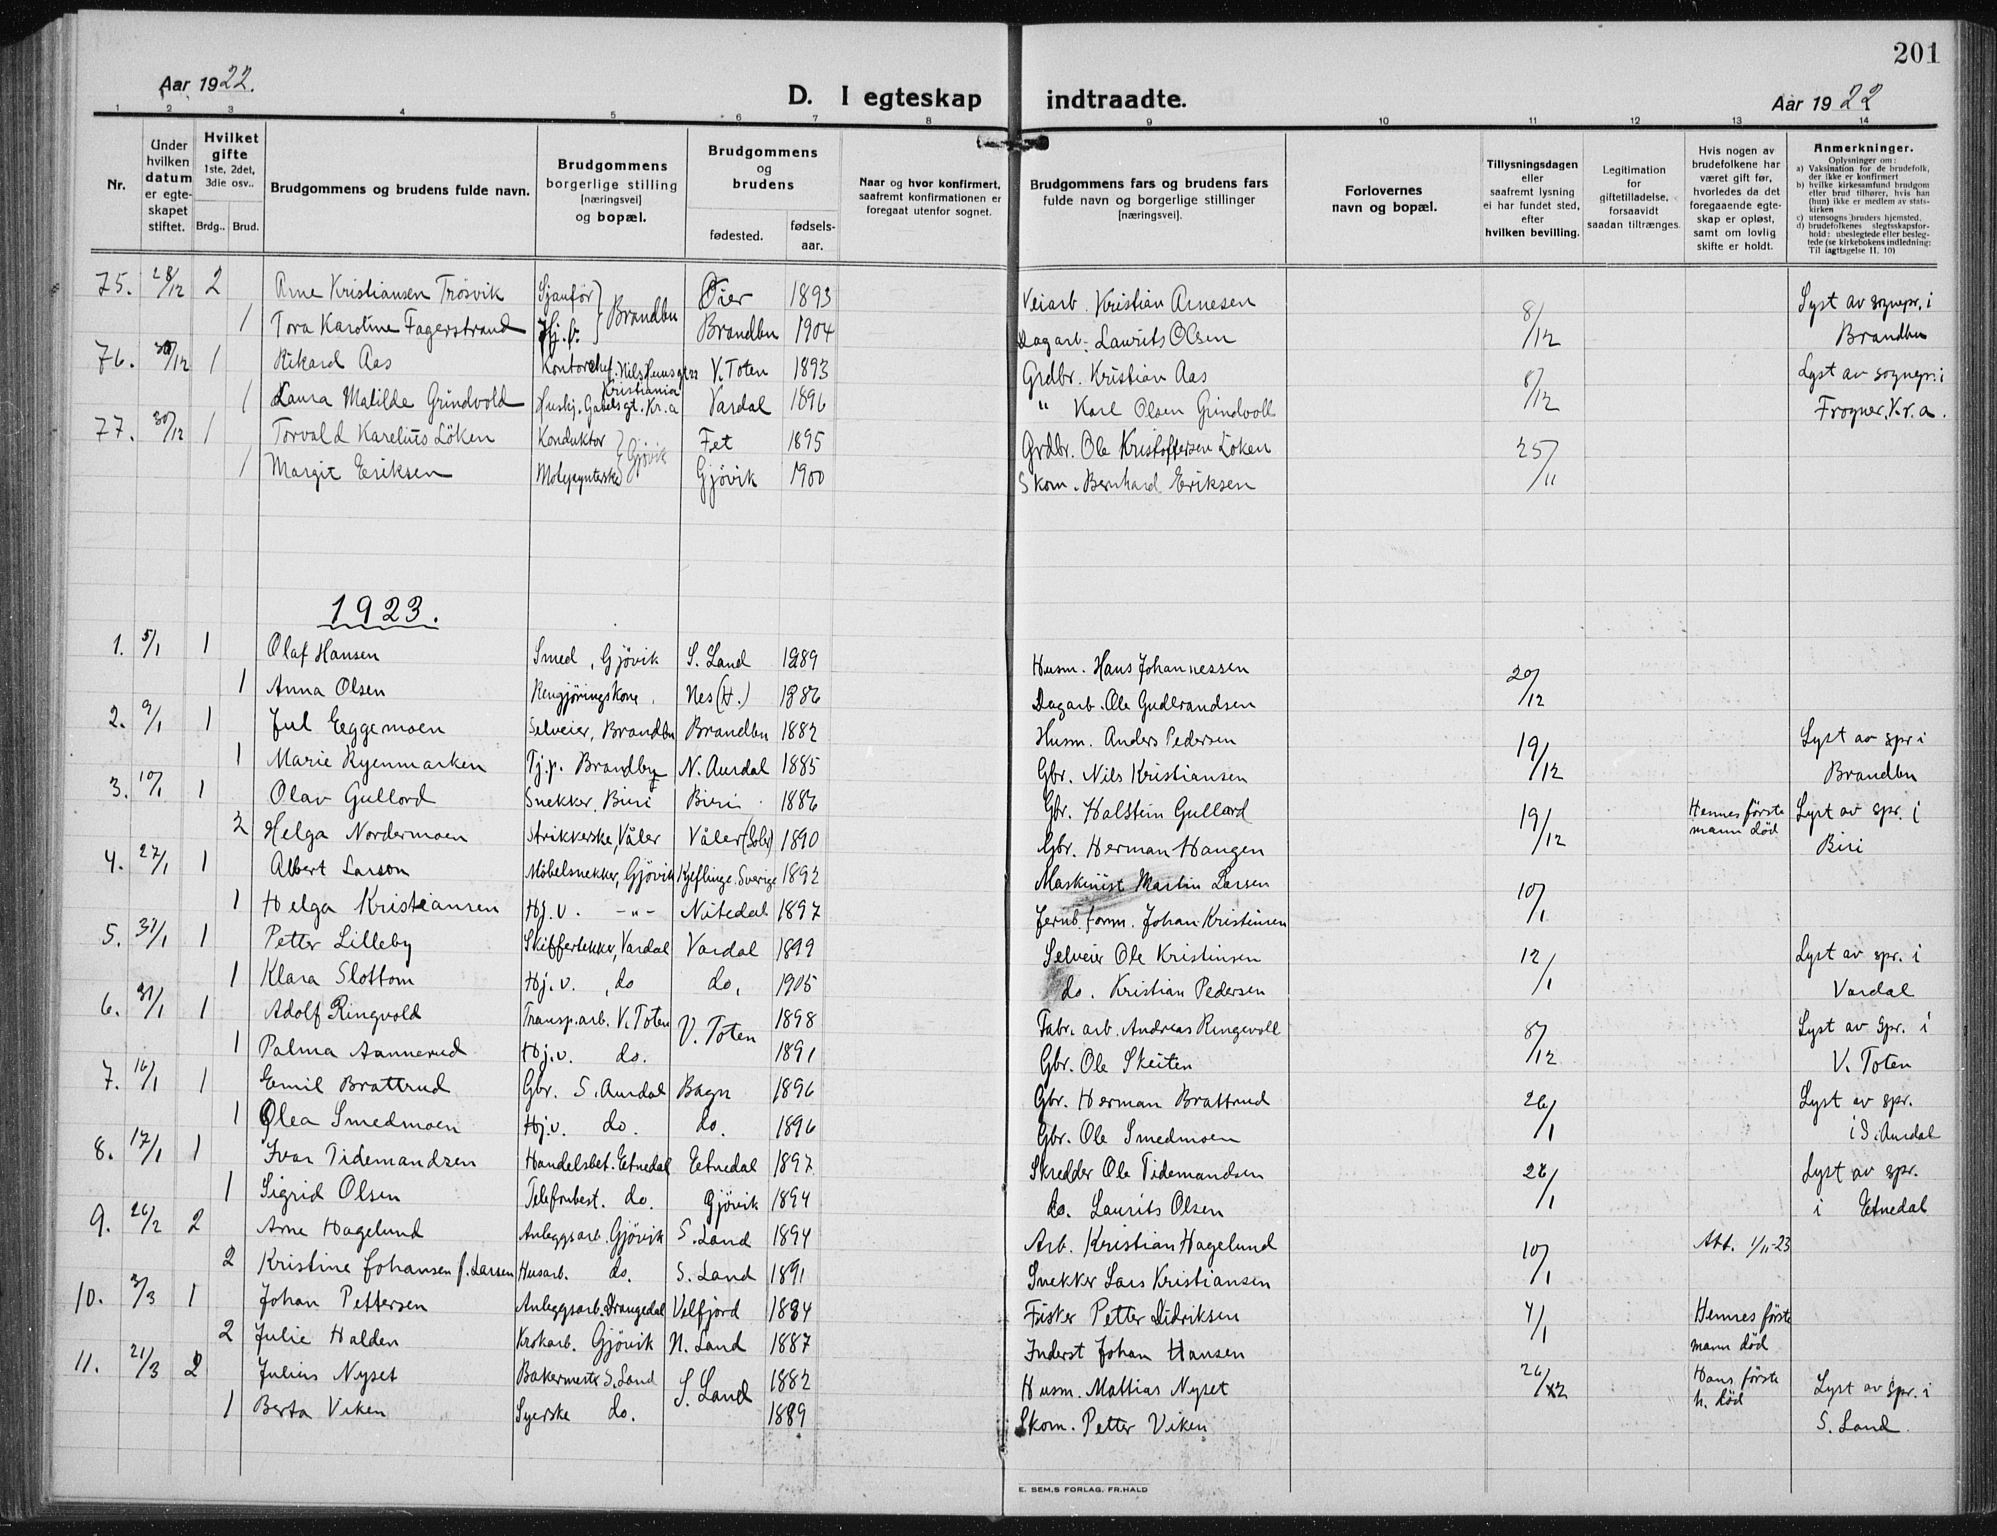 201
Aar 1922.
D. I egteskap indtraadte.
Aar 1922
1 2 3 4 5 6 7 8 9 10 11 12 13 14
Nr.
Under hvilken datum er egteskapet stiftet.
Hvilket gifte 1ste, 2det, 3die osv..
Brdg.. Brud.
Brudgommens og brudens fulde navn.
Brudgommens borgerlige stilling [næringsvei] og bopæl.
Brudgommens og brudens
fødested. fødselsaar.
Naar og hvor konfirmert, saafremt konfirmationen er foregaat utenfor sognet.
Brudgommens fars og brudens fars fulde navn og borgerlige stillinger [næringsvei].
Forlovernes navn og bopæl.
Tillysningsdagen eller saafremt lysning ei har fundet sted, efter hvilken bevilling.
Legitimation for giftetilladelse, forsaavidt saadan tiltrænges.
Hvis nogen av brudefolkene har været gift før, hvorledes da det foregaaende egteskap er opløst, samt om lovlig skifte er holdt.
Anmerkninger.
Oplysninger om:
a) Vaksination for de brudefolk, der ikke er konfirmert
b) hvilke kirkesamfund brudgom eller brud tilhører, hvis han (hun) ikke er medlem av statskirken
c) utensogns bruders hjemsted.
d) brudefolkenes slegtsskapsforhold: ubeslegtede eller beslegtede (se kirkebokens indledning: Til iagttagelse II. 10)
75. 28/12 2 Arne Kristiansen Trosvik Sjauför Brandbu Öier 1893 Veiarb. Kristian Arnesen 8/12 Lyst av sognepr. i
1 Tora Karoline Fagerstrand Hj. v. Brandbu 1904 Dagarb. Laurits Olsen Brandbu
76. 30/12 1 Rikard Aas Kontorchef. Nils Juusgt 22 Kristiania V. Toten 1893 Grdbr. Kristian Aas 8/12 Lyst av sognepr. i
1 Laura Matilde Grindvold Hushj. Gabelsgt. Kr.a Vardal 1896 " Karl Olsen Grindvoll Frogner, Kr.a.
77. 30/12 1 Torvald Karelius Löken Konduktor Gjövik Fet 1895 Grdbr. Ole Kristoffersen Löken 25/11
1 Margit Eriksen Motepynterske Gjövik 1900 Skom. Bernhard Eriksen
1923.
1. 5/1 1 Olaf Hansen Smed, Gjövik S. Land 1889 Husm. Hans Johannessen 20/12
1 Anna Olsen Rengjöringskone. Nes (H.) 1886 Dagarb. Ole Gudbrandsen
2. 9/1 1 Jul Eggemoen Selveier, Brandbu Brandbu 1882 Husm. Anders Pedersen 19/12 Lyst av spr i
1 Marie Ryenmarken Tj.p. Brandby N. Aurdal 1885 Gbr. Nils Kristiansen Brandbu
3. 10/1 1 Olav Gullord Snekker, Biri Biri 1886 Gbr. Halstein Gullord 19/12 Hennes förste mann död Lyst av spr. i
2 Helga Nordermoen Strikkerske, Våler Våler (Solör) 1890 Gbr. Herman Haugen Biri
4. 27/1 1 Albert Larson Möbelsnekker, Gjövik Kjeflinge. Sverige 1892 Maskinist Martin Larsen 10/1
1 Helga Kristiansen Hj.v. -"- Nitedal 1897 Jernb. form. Johan Kristiansen
5. 31/1 1 Petter Lilleby Skiffertekker, Vardal Vardal 1899 Selveier Ole Kristinsen 12/1 Lyst av spr. i
1 Klara Slottom Hj.v. , do do. 1905 do. Kristian Pedersen Vardal
6. 31/1 1 Adolf Ringvold Transp.arb. V. Toten V. Toten 1898 Fabr. arb. Andreas Ringevoll 8/12 Lyst av spr. i
1 Palma Aannerud Hj.v. do. 1891 Gbr. Ole Skeiten V. Toten
7. 16/1 1 Emil Brattrud Gbr. S. Aurdal Bagn 1896 Gbr. Herman Brattrud 26/1 Lyst av spr.
1 Olea Smedmoen Hj.v. do. do. 1896 Gbr. Ole Smedmoen i S. Aurdal
8. 17/1 1 Ivar Tidemandsen Handelsbet. Etnedal Etnedal 1897 Skredder Ole Tidemandsen 28/1 Lyst av spr.
1 Sigrid Olsen Telefonbest. do. Gjövik 1894 do. Laurits Olsen i Etnedal
9. 26/2 2 Arne Hagelund Anleggsarb. Gjövik S. Land 1894 Arb. Kristian Hagelund 10/1 Att. 1/11-23
2 Kristine Johansen f. Larsen Husarb. do. S. Land 1891 Snekker Lars Kristiansen
10. 3/3 1 Johan Pettersen Anleggsarb. Drangedal Velfjord 1884 Fisker Petter Didriksen 7/1 Hennes förste
2 Julie Halden Krokarb. Gjövik N. Land 1887 Inderst Johan Hansen mann död
11. 21/3 2 Julius Nyset Bakermester S. Land S. Land 1882 Husm. Mattias Nyset 26/2 Hans förste Lyst av spr. i
1 Berta Viken Syerske do. 1889 Skom. Petter Viken h. död S. Land
E. SEM,S FORLAG, FR.HALD